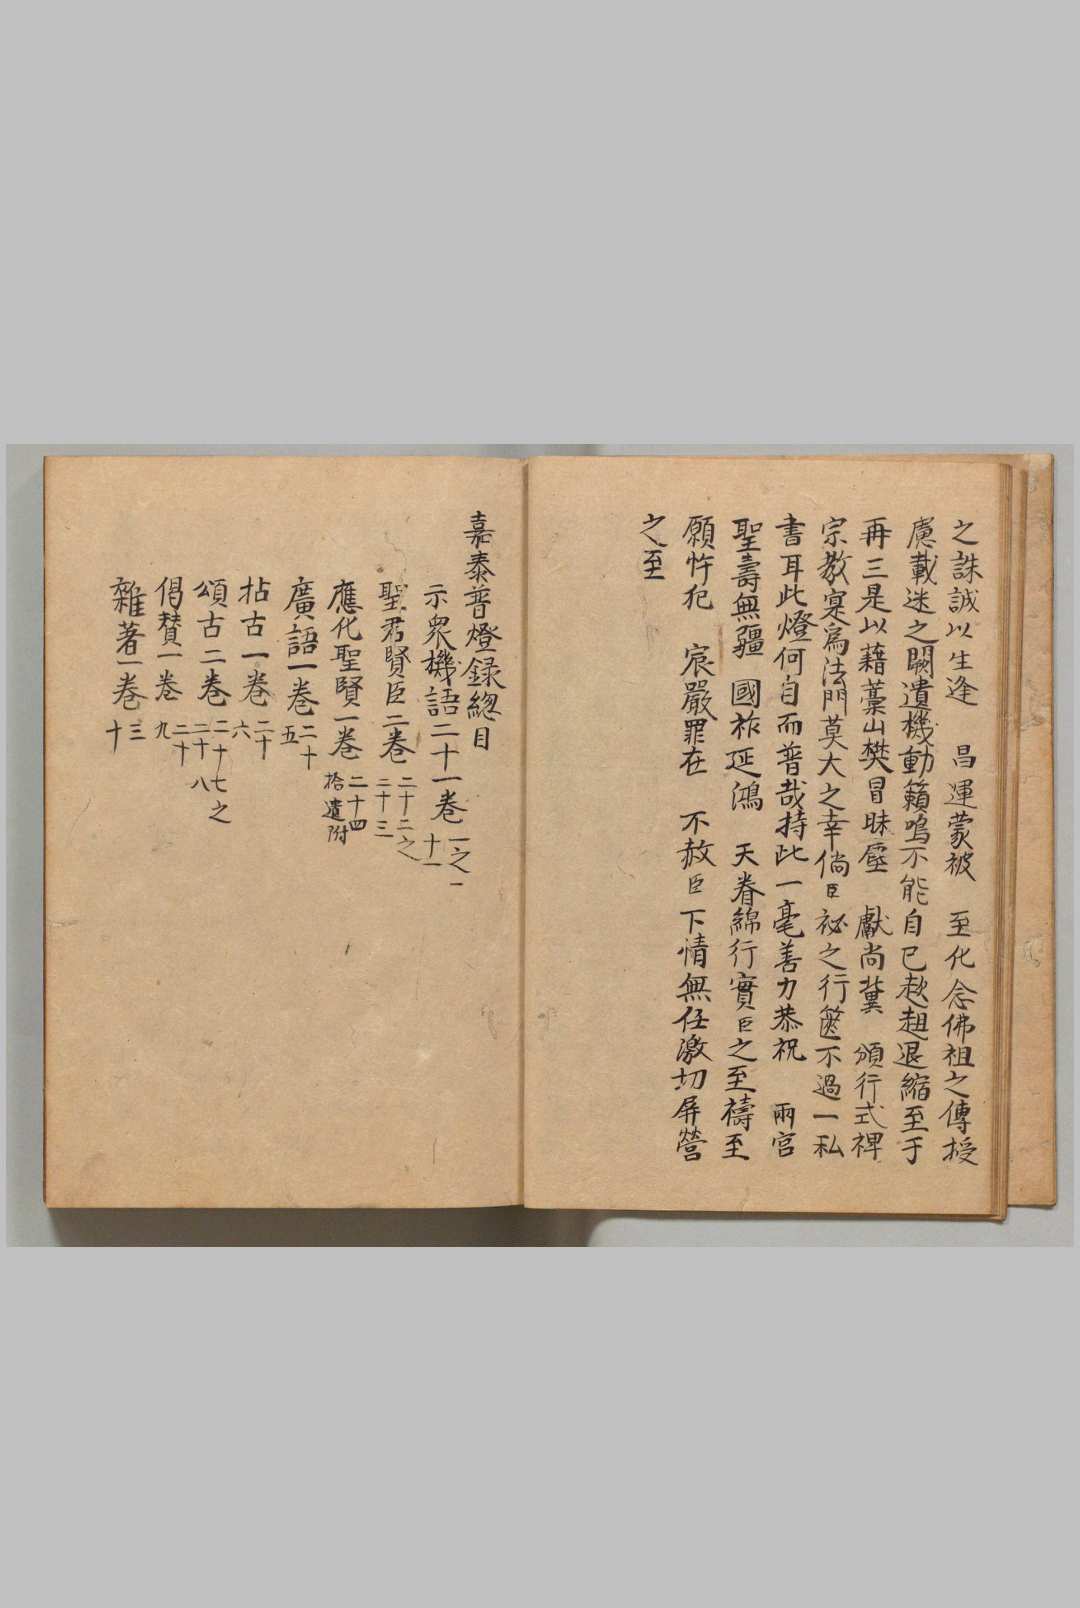 之誅誠以生逢　昌運蒙被　至化念佛祖之傳授
慮載述之闕遺機動籟鳴不能自已趑趄退縮至于
再三是以藉藁山樊冒昧塵　獻尚冀　頒行式裨
宗教寔為法門莫大之幸倘臣祕之行篋不過一私
書耳此燈何自而普哉持此一毫善力恭祝　兩宮
聖壽無疆　國祚延鴻　天眷綿行實臣之至禱至
願忤犯　宸嚴罪在　不赦臣下情無任激切屏營
之至
嘉泰普燈錄總目
示衆機語二十一卷 一之二十一
聖君賢臣二卷 二十二之二十三
應化聖賢一卷 二十四拾遺附
廣語一卷 二十五
拈古一卷 二十六
頌古二卷 二十七之二十八
偈賛一卷 二十九
雜著一卷 三十